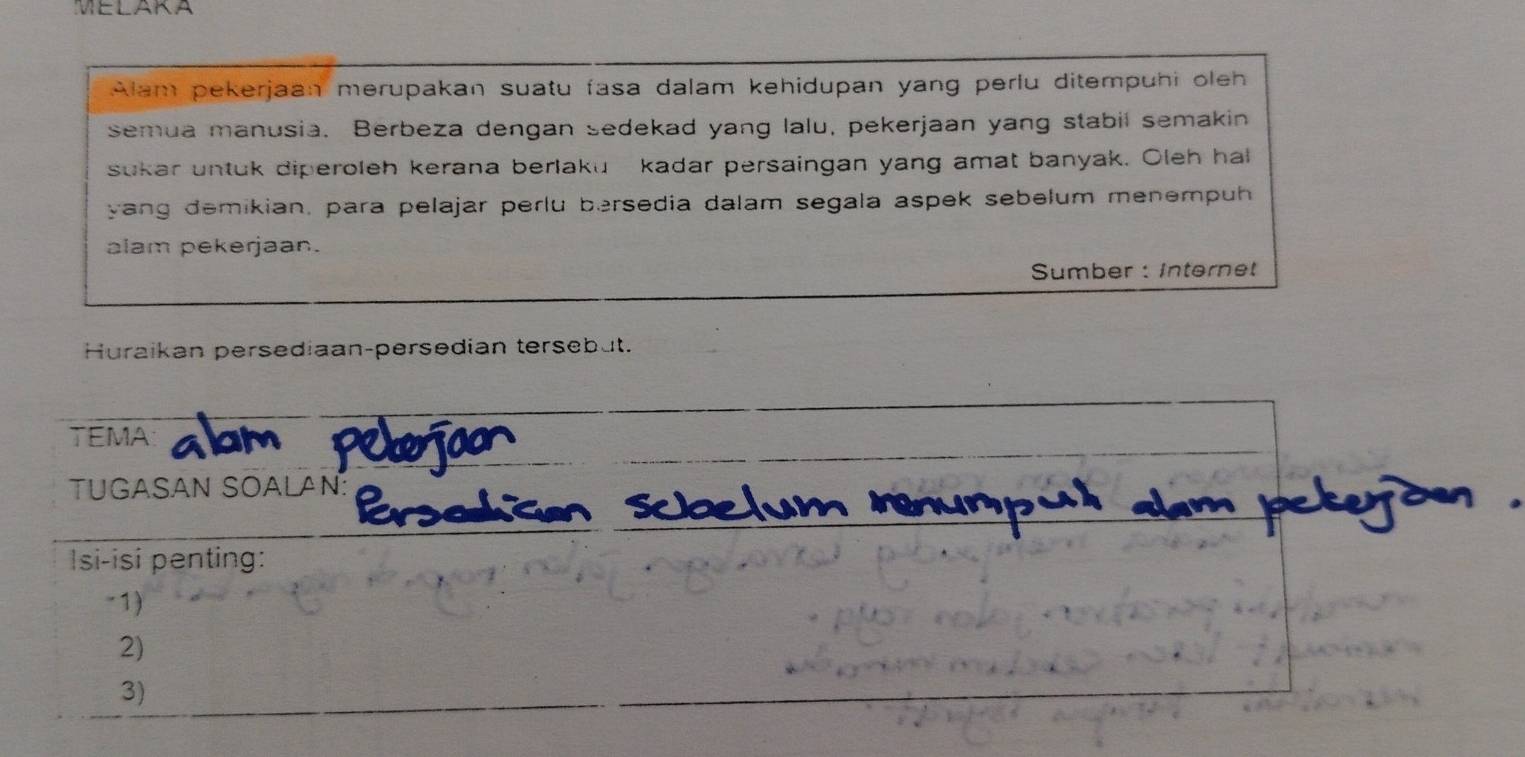 MELAKA
Alam pekerjaan merupakan suatu fasa dalam kehidupan yang perlu ditempuhi oleh
semua manusia. Berbeza dengan sedekad yang lalu, pekerjaan yang stabil semakin
sukar untuk diperoleh kerana berlaku kadar persaingan yang amat banyak. Oleh hal
yang demikian, para pelajar perlu bersedia dalam segala aspek sebelum menempuh
alam pekerjaan.
Sumber : Internet
Huraikan persediaan-persedian tersebut.
TEMA: alam pekerjaan
TUGASAN SOALAN: Persedian sebelum menumpuh alam pekerjaan.
Isi-isi penting:
1)
2)
3)